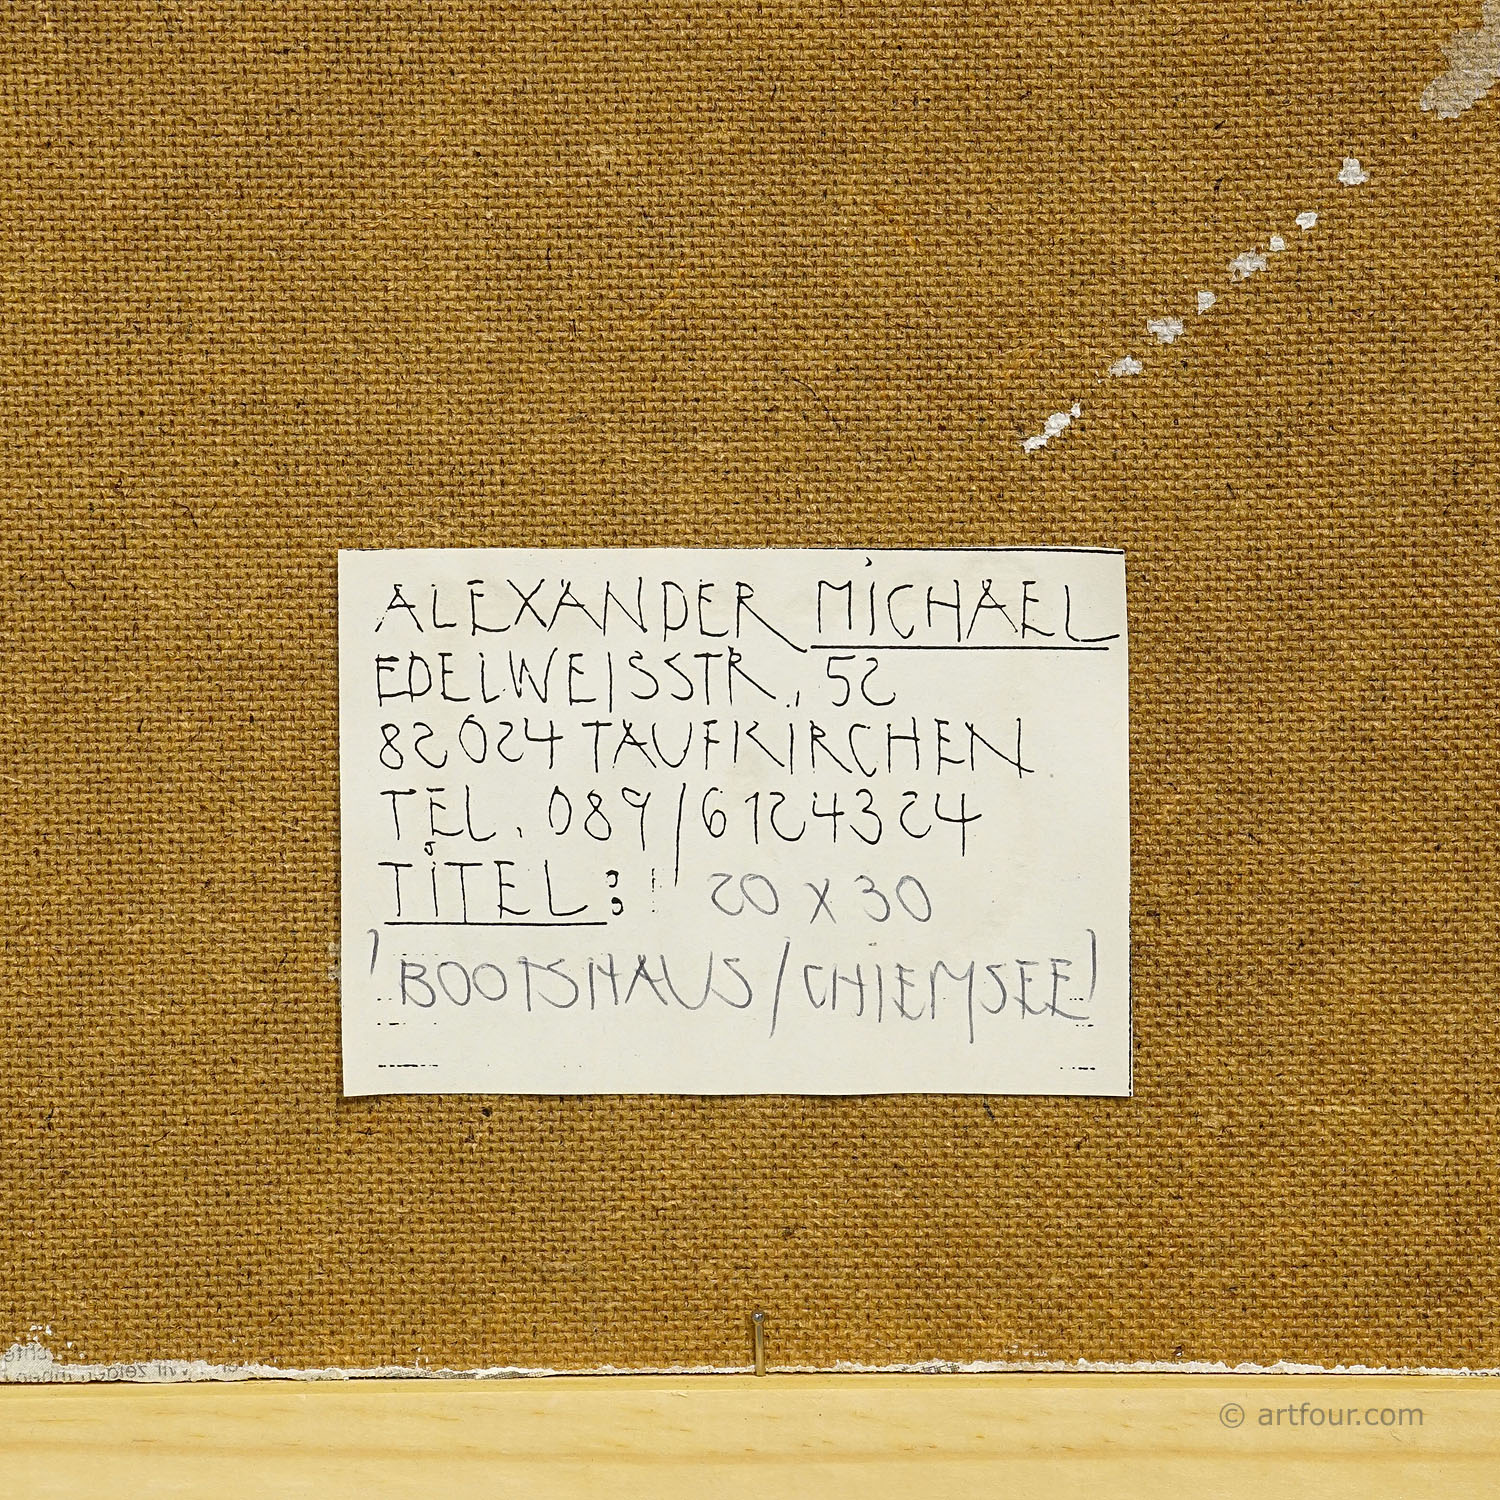 ALEXANDER MICHAEL
EDELWEISSTR., 52
82024 TAUFKIRCHEN
TEL. 089/6124324
TITEL: 20 x 30
'BOOTSHAUS/CHIEMSEE'
© artfour.com